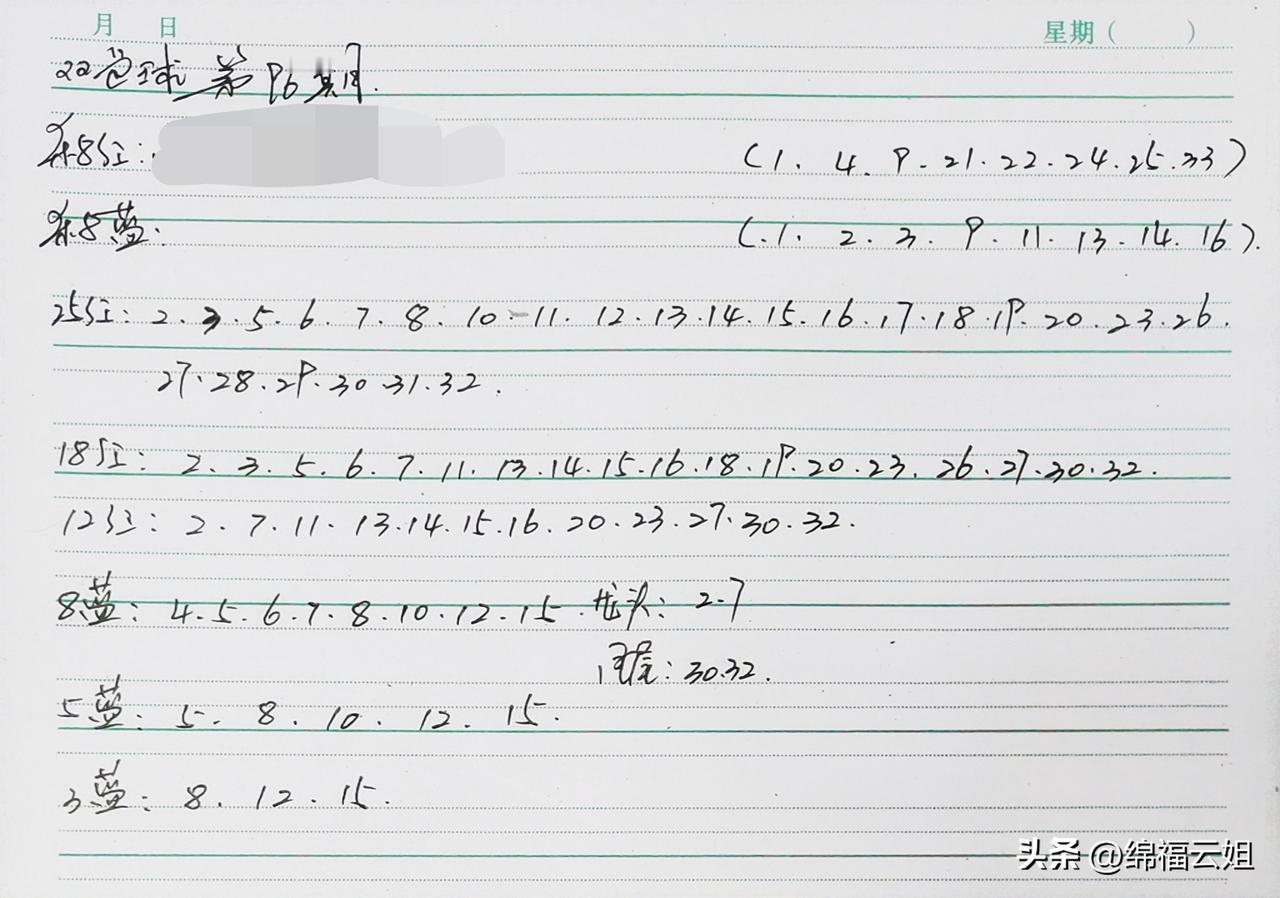 月 日 星期( )
双色球 第96期.
杀8红: (1. 4. 9. 21. 22. 24. 25. 33)
杀8蓝: (.1. 2. 3. 9. 11. 13. 14. 16).
25红: 2. 3. 5. 6. 7. 8. 10. 11. 12. 13. 14. 15. 16. 17. 18. 19. 20. 23. 26.
27. 28. 29. 30. 31. 32.
18红: 2. 3. 5. 6. 7. 11. 13. 14. 15. 16. 18. 19. 20. 23. 26. 27. 30. 32.
12红: 2. 7. 11. 13. 14. 15. 16. 20. 23. 27. 30. 32.
8蓝: 4. 5. 6. 7. 8. 10. 12. 15. 龙头: 2. 7
凤尾: 30. 32.
5蓝: 5. 8. 10. 12. 15.
3蓝: 8. 12. 15.
头条 @绵福云姐